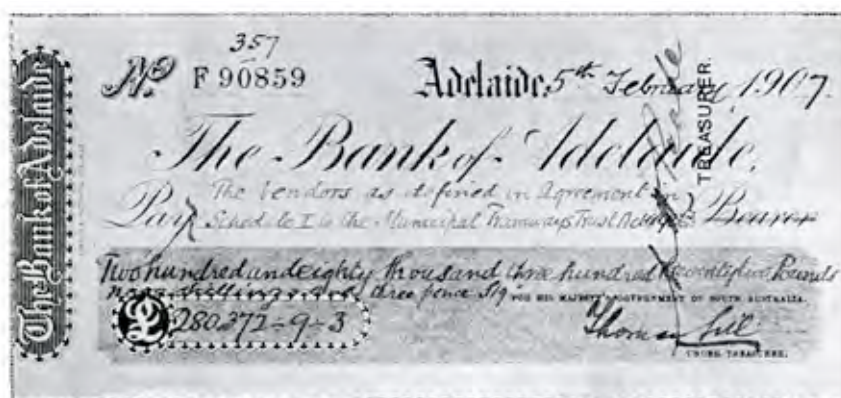 The Bank of Adelaide
357
No. F 90859
Adelaide, 5th February 1907.
The Bank of Adelaide,
Pay The Vendors as defined in Agreement in
Schedule I to the Municipal Tramways Trust Bearer
Two hundred and eighty thousand three hundred & seventy two Pounds
nine shillings and three pence Stg
FOR HIS MAJESTY'S GOVERNMENT OF SOUTH AUSTRALIA.
£ 280372-9-3
Thomas Gill
UNDER TREASURER.
TREASURER.